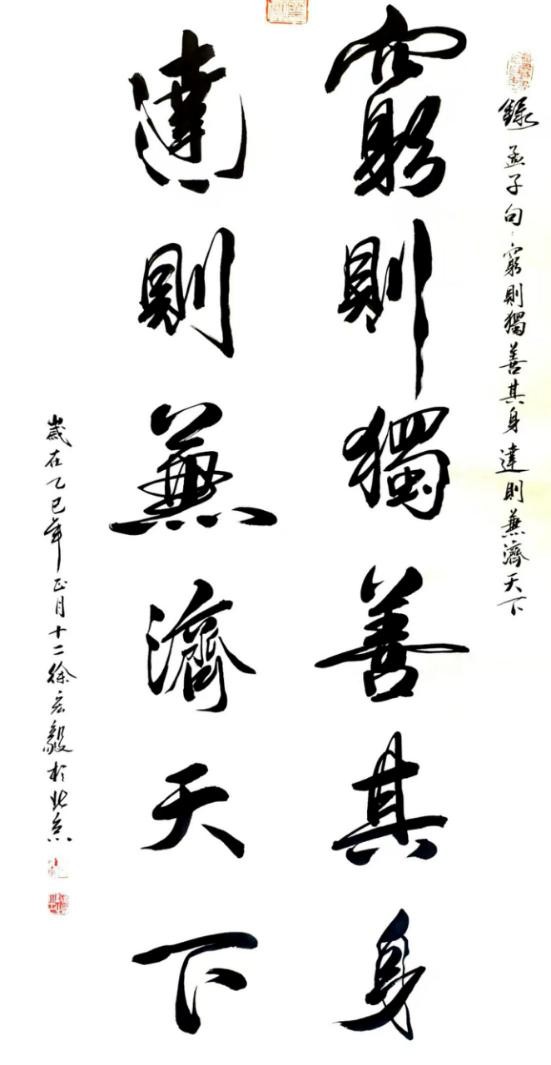 錄孟子句:窮則獨善其身達則兼濟天下
窮則獨善其身
達則兼濟天下
歲在乙巳年正月十二徐宏毅於北京